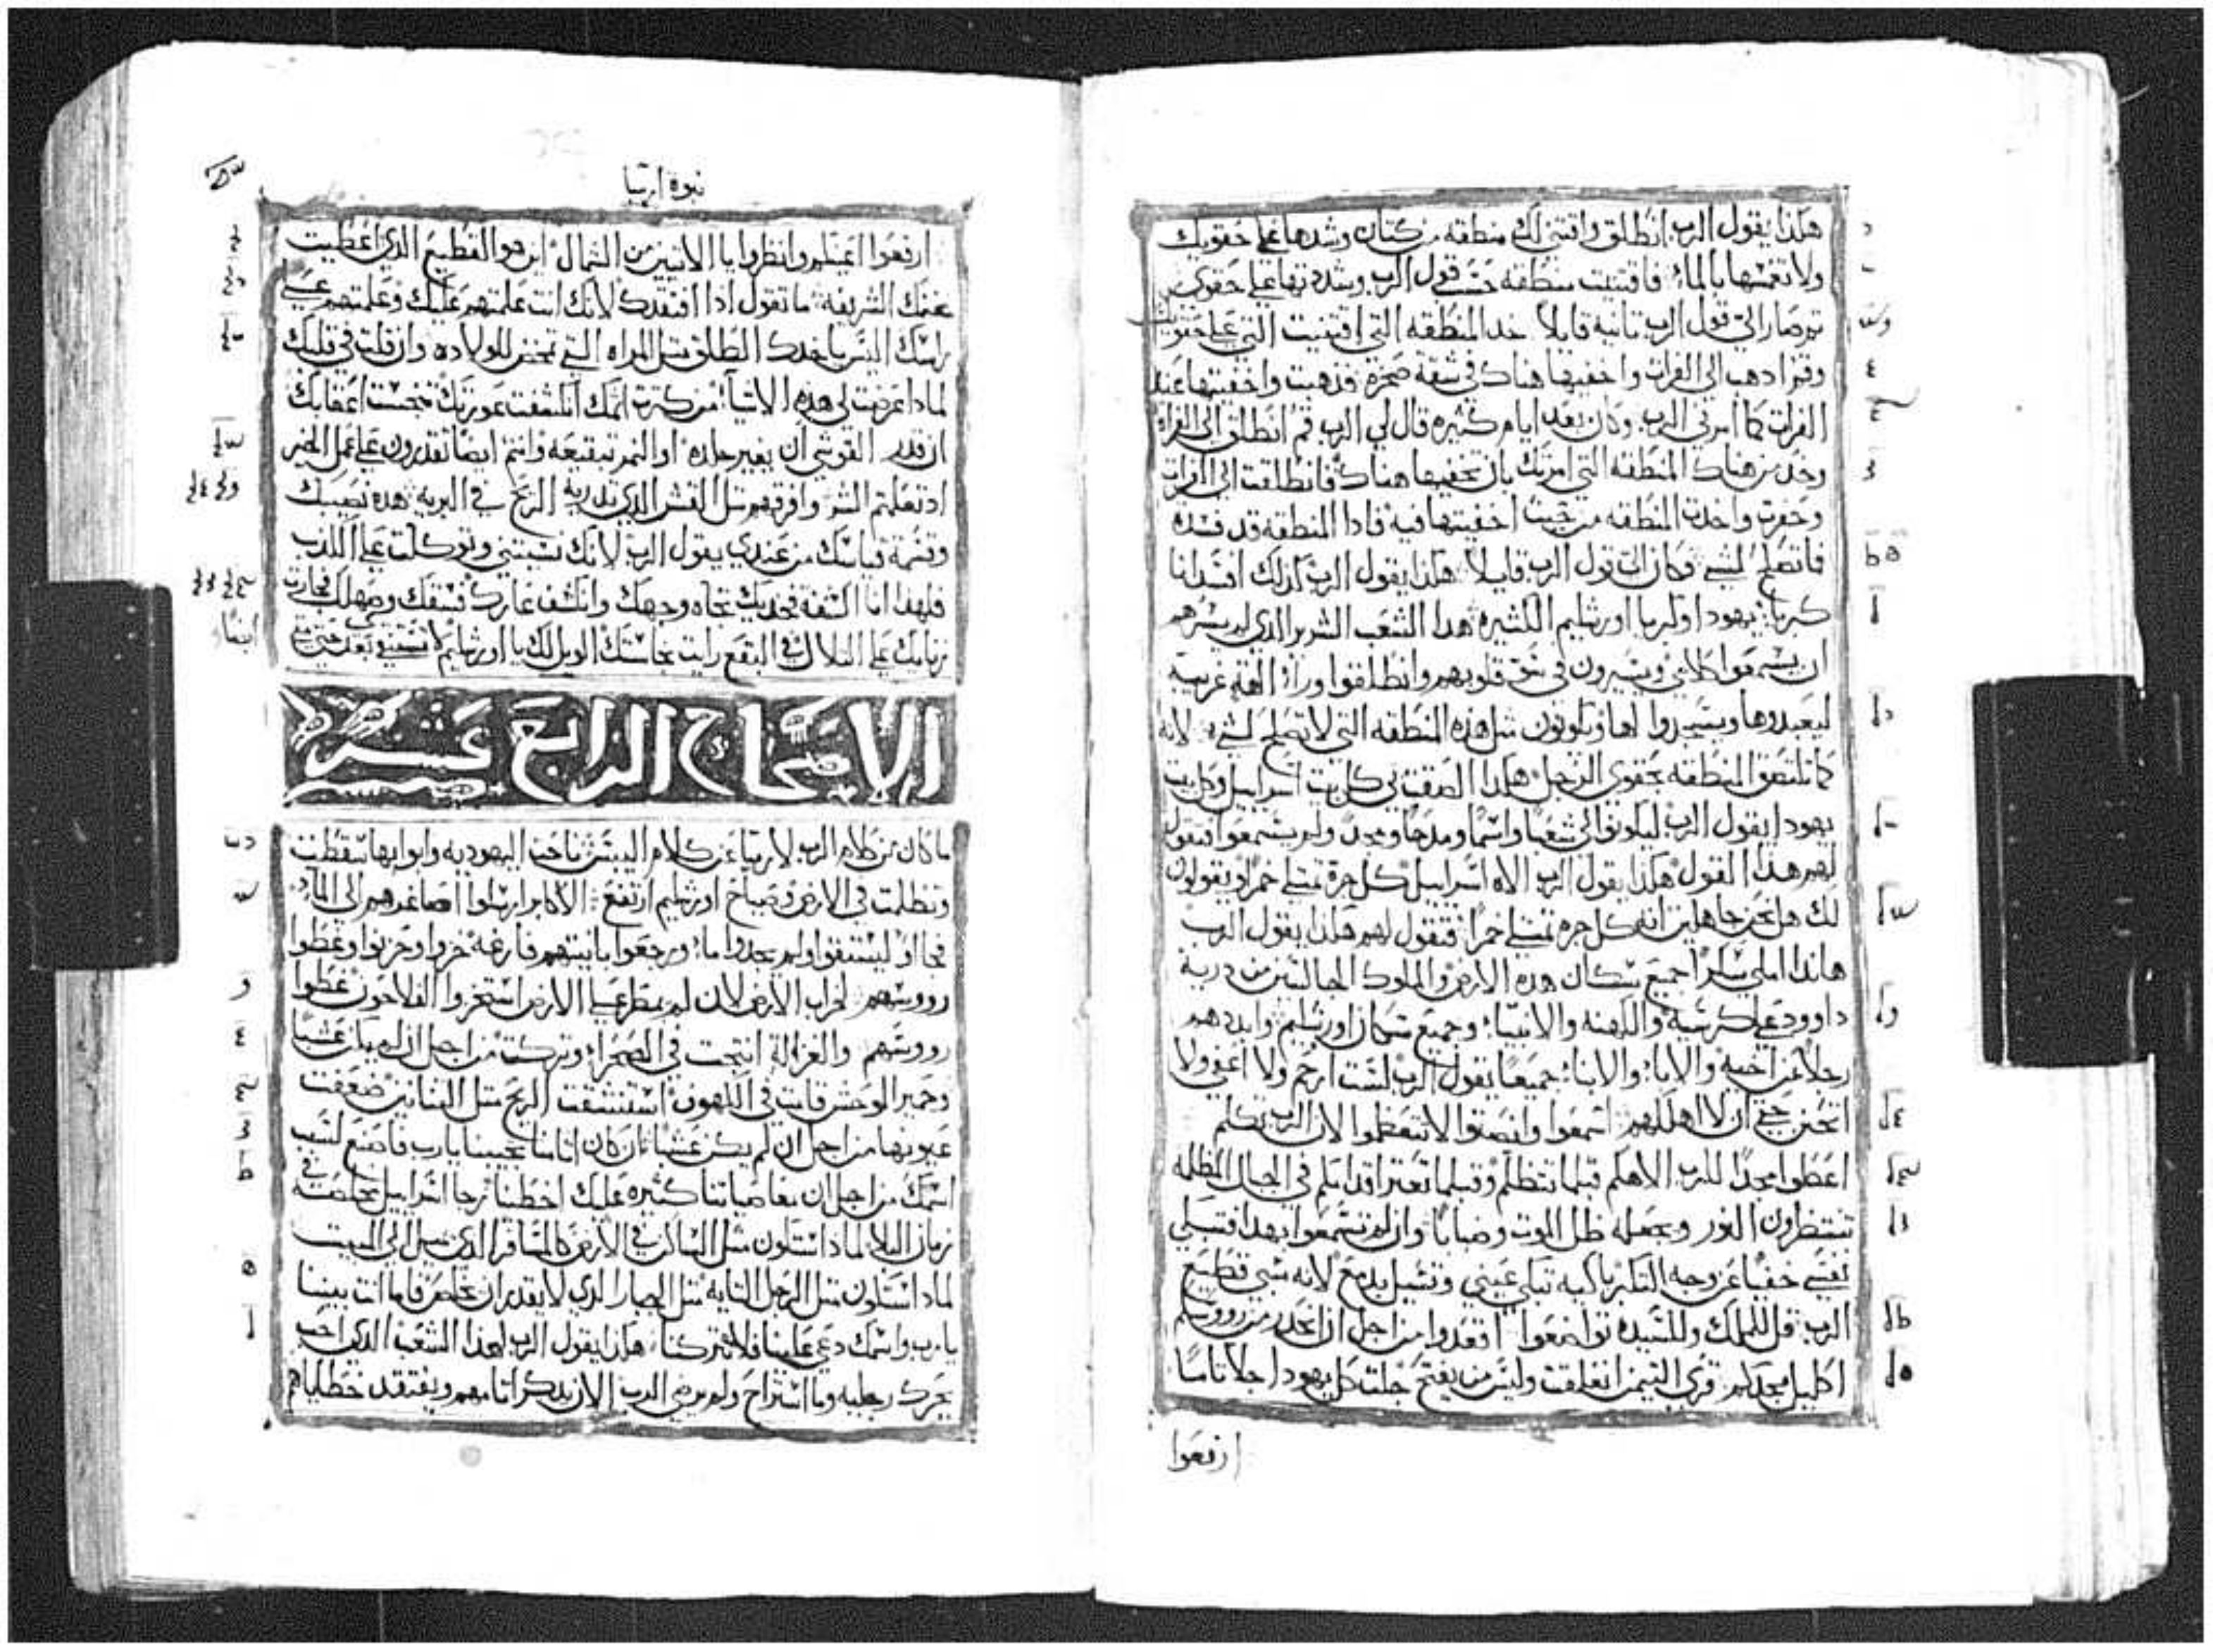 هكذا يقول الرب انطلق واقتني لك منطقه من كتان وشدها على حقويك
ولا تغمسها بالماء فاقتنيت منطقه حسب قول الرب وشدتها على حقوي
ثم صار الي قول الرب ثانية قايلا خد المنطقه التي اقتنيت التي على حقويك
وقم ادهب الى الفرات واخفيها هناك في شقة صخرة فذهبت واخفيتها عند
الفرات كما امرني الرب وكان بعد ايام كثيره قال لي الرب قم انطلق الى الفراة
وخد من هناك المنطقه التي امرتك بان تخفيها هناك فانطلقت الى الفرات
وحفرت واخدت المنطقه من حيث اخفيتها فيه فادا المنطقه قد فسده
فكان الي قول الرب قايلا هكذا يقول الرب كدلك افسد انا
كبريا يهودا وكبريا اورشليم الكثيرة هدا الشعب الشرير الدي
ان يسمعوا كلامي ويسيرون في قلوبهم وانطلقوا ورآء الهة غريبه
ليعبدوها ويسجدوا لها ويكونون مثل هذه المنطقه التي لا تصلح لشي لانه
كما تلتصق المنطقه بحقوي الرجل هكدا الصقت بي كل بيت اسراييل وكل بيت
يهودا يقول الرب ليكونوا لي شعبا واسما ومدحا ومجدا ولم يسمعوا فتقول
لهم هذا القول هكذا يقول الرب الاه اسراييل كل جرة تمتلي خمرا ويقولون
لك هل نحن جاهلين انه كل جره تمتلي خمرا فتقول لهم هكذا يقول الرب
هاندا املي سكرا جميع سكان هده الارض والملوك الجالسين من درية
داوود على كرسيه والكهنه والانبياء وجميع سكان اورشليم وابددهم
رجلا عن اخيه والاباء والابناء جميعا يقول الرب لست ارحم ولا اعفي ولا
اتحنن حتي ان لا اهلكهم اسمعوا وانصتوا لا تتعظموا لان الرب تكلم
اعطوا مجدا للرب الاهكم قبلما تتظلم وقبلما تعتر اقدامكم في الجبال المظلمه
تنتظرون النور ويجعله ظل الموت وضبابا وان لم تسمعوا بهدا فتبكي
نفسي خفيا عن وجه التكبر باكيه تبكي عيني وتسيل بدمع لانه سبي قطيع
الرب قل للملك وللسيده تواضعوا اقعدوا من اجل ان انحدر من رووسكم
اكليل مجدكم قري التيمن انغلقت وليس من يفتح جلت كل يهودا جلا تاما
ارفعوا
نبوة ارميا
ارفعوا اعينكم وانظروا يا الاتيين من الشمال اين هو القطيع الذي اعطيت
غنمك الشريفه ما تقول اذا افتقدك لانك انت علمتهم عليك وعلمتهم على
راسك اليس ياخدك الطلق مثل المراه التي تمخض للولاده وان قلت في قلبك
لمادا عرضت لي هده الاشياء من كثرت اتمك انكشفت عورتك تنجست اعقابك
ان قدر القوشي ان يغير جلده او النمر تبقيعه وانتم ايضا تقدرون على عمل الخير
اد تعلمتم الشر وافرقهم مثل القش الذي تدريه الريح في البريه هده نصيبك
وقسمة قياسك من عندي يقول الرب لانك نسيتني وتوكلت على الكدب
فلهدا انا اكشفه فخديك تجاه وجهك وانكشف عارك فسقك وصهلك فجارة
زنايك على التلال في البقع رايت نجاستك الويل لك يا اورشليم بعد حتي متي
ايضا
الاصحاح الرابع عشر
ما كان من كلام الرب لارميا عن كلام اليبس ناحت اليهوديه وابوابها سقطت
وتظلمت في الارض وصياح اورشليم ارتفع الاكابر ارسلوا اصاغرهم الى الماء
فجاءوا ليستقوا ولم يجدوا ماء ورجعوا بانيتهم فارغه خزوا وحزنوا وغطوا
رووسهم لخراب الارض لان لم يمطر على الارض استخزوا الفلاحون غطوا
رووسهم والغزاله انتجت في الصحراء وتركت من اجل ان لم يكن عشبا
وحمير الوحش قامت في الكهوف استنشقت الريح مثل التنانين ضعفت
عيونها من اجل ان لم يكن عشبا ان كان اتامنا تجيبنا يا رب فاصنع لسبب
اسمك من اجل ان معاصياتنا كثيره عليك اخطينا رجا اسراييل مخلصه في
زمان البلا لمادا ستكون مثل الساكن في الارض كالمسافر الدي يميل الى المبيت
لمادا ستكون مثل الرجل التايه مثل الجبار الدي لا يقدر ان يخلص فاما انت بيننا
يا رب واسمك دعي علينا فلا تتركنا هكذا يقول الرب لهدا الشعب الدي احب
يحرك رجليه وما استراح ولم يرضي الرب الان يدكر اتامهم ويفتقد خطاياهم